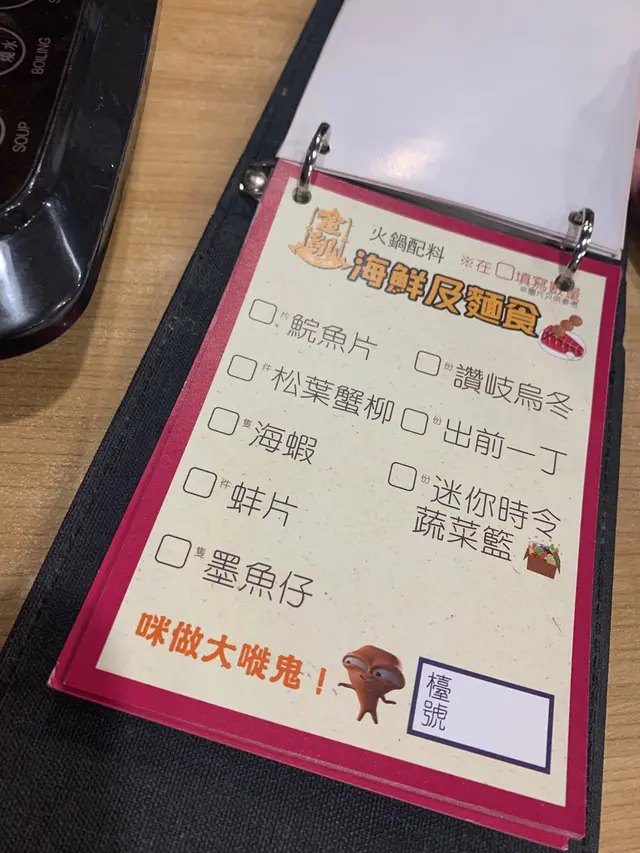 燒水
BOILING
SOUP
火鍋配料
※在□填寫數量
※圖片只供參考
海鮮及麵食
□片 鯇魚片
□件 松葉蟹柳
□隻 海蝦
□件 蚌片
□隻 墨魚仔
□份 讚岐烏冬
□份 出前一丁
□份 迷你時令
蔬菜籃
咪做大嘥鬼！
檯號